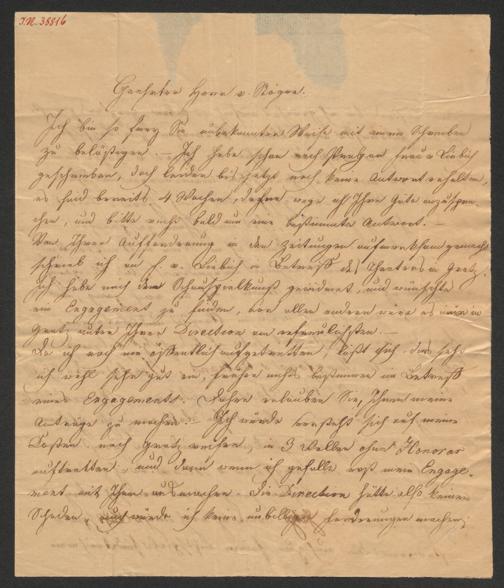 I.N. 38816
Geehrter Herr v. Stöger.
Ich bin so frey Sie unbekannter Weise mit meinem Schreiben
zu belästigen. – Ich habe schon nach Herrn v Liebich
geschrieben, doch leider bis jetzt noch keine Antwort erhalten,
es sind bereits 4 Wochen, daher wage ich Ihre Güte anzuspre-
chen, und bitte recht bald um eine bestimmte Antwort. –
Von Ihrer Aufforderung in den Zeitungen aufmerksam gemacht
schrieb ich an H. v. Liebich in Betreff des Theaters in Gratz.
Ich habe mich der Schauspielkunst gewidmet, und wünschte
ein Engagement zu finden, vor allen andern wäre es mir in
Gratz unter Ihrer Direction am erfreulichsten. –
Da ich noch nie öffentlich aufgetretten, läßt sich, das sehe
ich wohl sehr gut ein, freylich nichts bestimmen in Betreff
eines Engagements. Daher erlauben Sie, Ihnen meine
Anträge zu machen. – Ich würde auf meine
Kosten nach Gratz reisen, in 3 Rollen ohne Honorar
auftretten, und dann wenn ich gefalle erst mein Engage-
ment mit Ihnen ausmachen. Die Direction hätte also keinen
Schaden, auch würde ich keine unbilligen Forderungen machen,